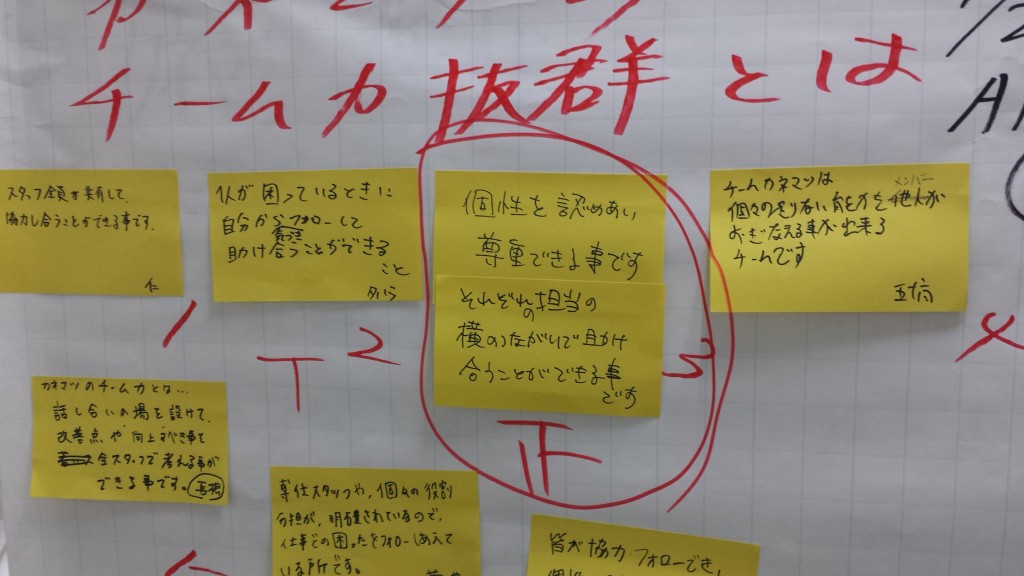 チーム力抜群とは
スタッフ全員が共有して、
協力し合うことができる事です。
仁
仏が困っているときに
自分からフォローして
助け合うことができる
こと
個性を認めあい
尊重できる事です
それぞれの担当の
横のつながりで助け
合うことができる事
です
チームカネマツは
メンバー
個々の足りない所を
おぎなえる事が出来る
チームです
1
T
2
3
4
正
カネマツのチーム力とは…
話し合いの場を設けて、
改善点や向上すべき事を
全スタッフで考える事が
できる事です。
専任スタッフや、個々の役割
分担が、明確されているので、
仕事での困ったをフォローしあえて
いる所です。
皆が協力フォローでき、